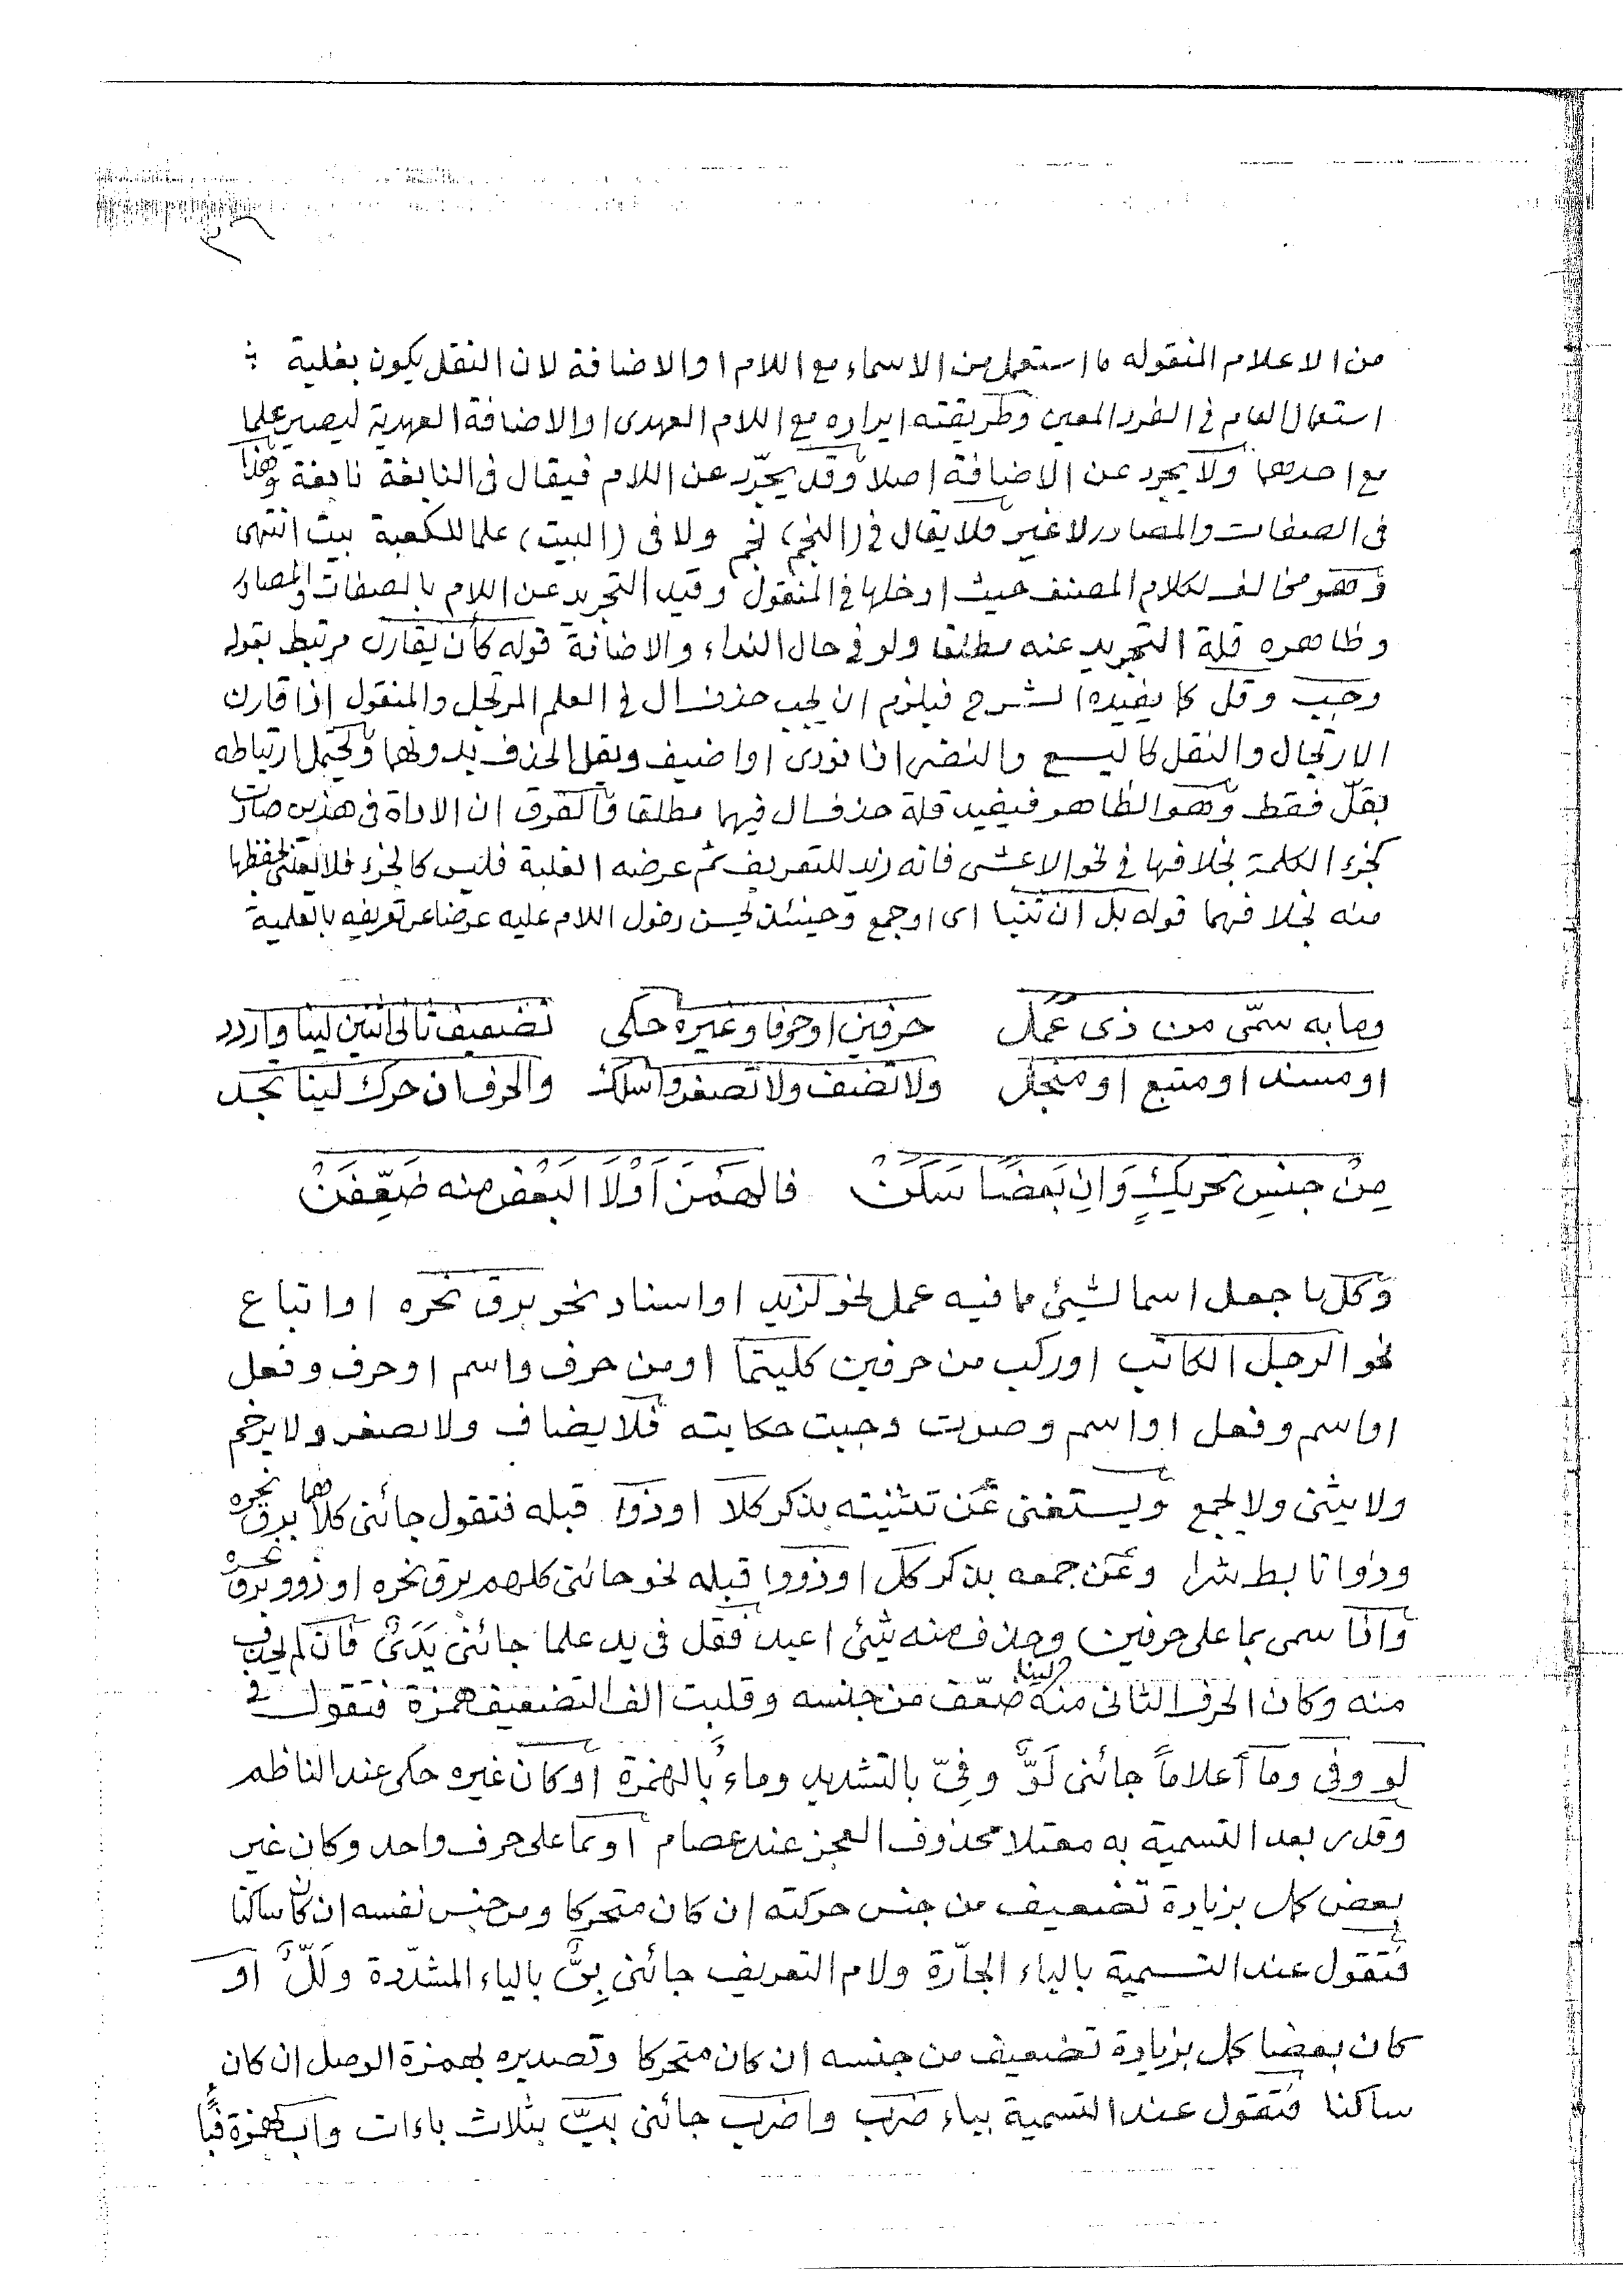 من الاعلام المنقوله ما استعمل من الاسماء مع اللام او الاضافة لان النقل يكون بغلبة
استعمال العام فى الفرد المعين وطريقته ايراده مع اللام العهدى او الاضافة العهدية ليصير علما
مع احدهما ولا يجرد عن الاضافة اصلا وقد يجرّد عن اللام فيقال فى النابغة نابغة وهذا
فى الصفات والمصادر لا غير فلا يقال فى (النجم) نجم ولا فى (البيت) علما للكعبة بيت انتهى
وهو مخالف لكلام المصنف حيث ادخلها فى المنقول وقيد التجريد عن اللام بالصفات والمصادر
وظاهره قلة التجريد عنه مطلقا ولو فى حال النداء والاضافة قوله كأن يقارن مرتبط بقوله
وجب وقل كما يفيده الشرح فيلزم ان يجب حذف ال فى العلم المرتجل والمنقول اذا قارن
الارتجال والنقل كاليسع والنضر اذا نودى او اضيف ويقل الحذف بدونهما ويحتمل ارتباطه
بقلّ فقط وهو الظاهر فيفيد قلة حذف ال فيهما مطلقا والفرق ان الاداة فى هذين صارت
كجزء الكلمة بخلافها فى نحو الاعشى فانه زيد للتعريف ثم عرضه الغلبة فليس كالجزء فلا يعتنى بحفظها
منه بخلافهما قوله بل ان ثنيا اى او جمع وحينئذ يحسن دخول اللام عليه عوضا عن تعريفه بالعلمية
وما به سمّى من ذى عمل حرفين او حرفا وغيره حكى تضعيف ثانى اثنين لينا واردد
او مسند او متبع او منجعل ولا تضف ولا تصغر واسلك والحرف ان حرك لينا تجد
مِنْ جنسِ تحريكٍ وَاِن بَعضًا سَكَنْ فالهَمْزَ اَوْلَا البَعْض منه ضَعِّفَنْ
وكل ما جعل اسما لشيئ مما فيه عمل نحو لزيد او اسناد نحو برق نحره او اتباع
نحو الرجل الكاتب او ركب من حرفين كليتما او من حرف واسم او حرف وفعل
او اسم وفعل او اسم وصوت وجبت حكايته فلا يضاف ولا يصغر ولا يرخم
ولا يثنى ولا يجمع ويستغنى عن تثنيته بذكر كلا او ذوا قبله فتقول جائنى كلاهما برق نحره
وذوا تابط شرا وعن جمعه بذكر كل او ذووا قبله نحو جائنى كلهم برق نحره او ذوو برق نحره
واذا سمى بما على حرفين وحذف منه شيئ اعيد فقل فى يد علما جائنى يَدَىٌ فان لم يحذف
منه وكان الحرف الثانى منه لينا ضعّف من جنسه وقلبت الف التضعيف همزة فتقول فى
لو وفى وما أعلاماً جائنى لَوٌّ وفِىّ بالتشديد وماءٌ بالهمزة او كان غيره حكى عند الناظم
وقدر بعد التسمية به معتلا محذوف العجز عند عصام او بما على حرف واحد وكان غير
بعض كمل بزيادة تضعيف من جنس حركته ان كان متحركا ومن جنس نفسه ان كان ساكنا
فتقول عند التسمية بالباء الجارّة ولام التعريف جائنى بِىٌّ بالياء المشدّدة ولَلٌّ او
كان بعضا كمل بزيادة تضعيف من جنسه ان كان متحركا وتصديره بهمزة الوصل ان كان
ساكنا فتقول عند التسمية بباء ضرب واضرب جائنى ببّ بثلاث باءات واب بهمزة